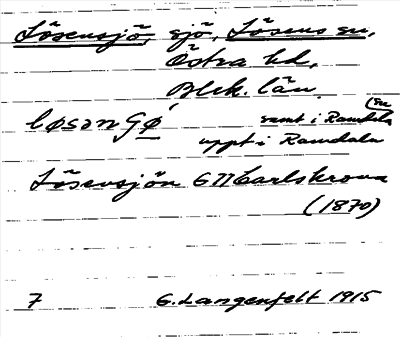 Lösensjö, sjö, Lösens sn,
Östra hd,
Blek. län.
lösənʃǿ̱ samt i Ramdala (sn
uppt i Ramdala
Lösensjön GN Carlskrona
(1870)
7 G. Langenfelt 1915